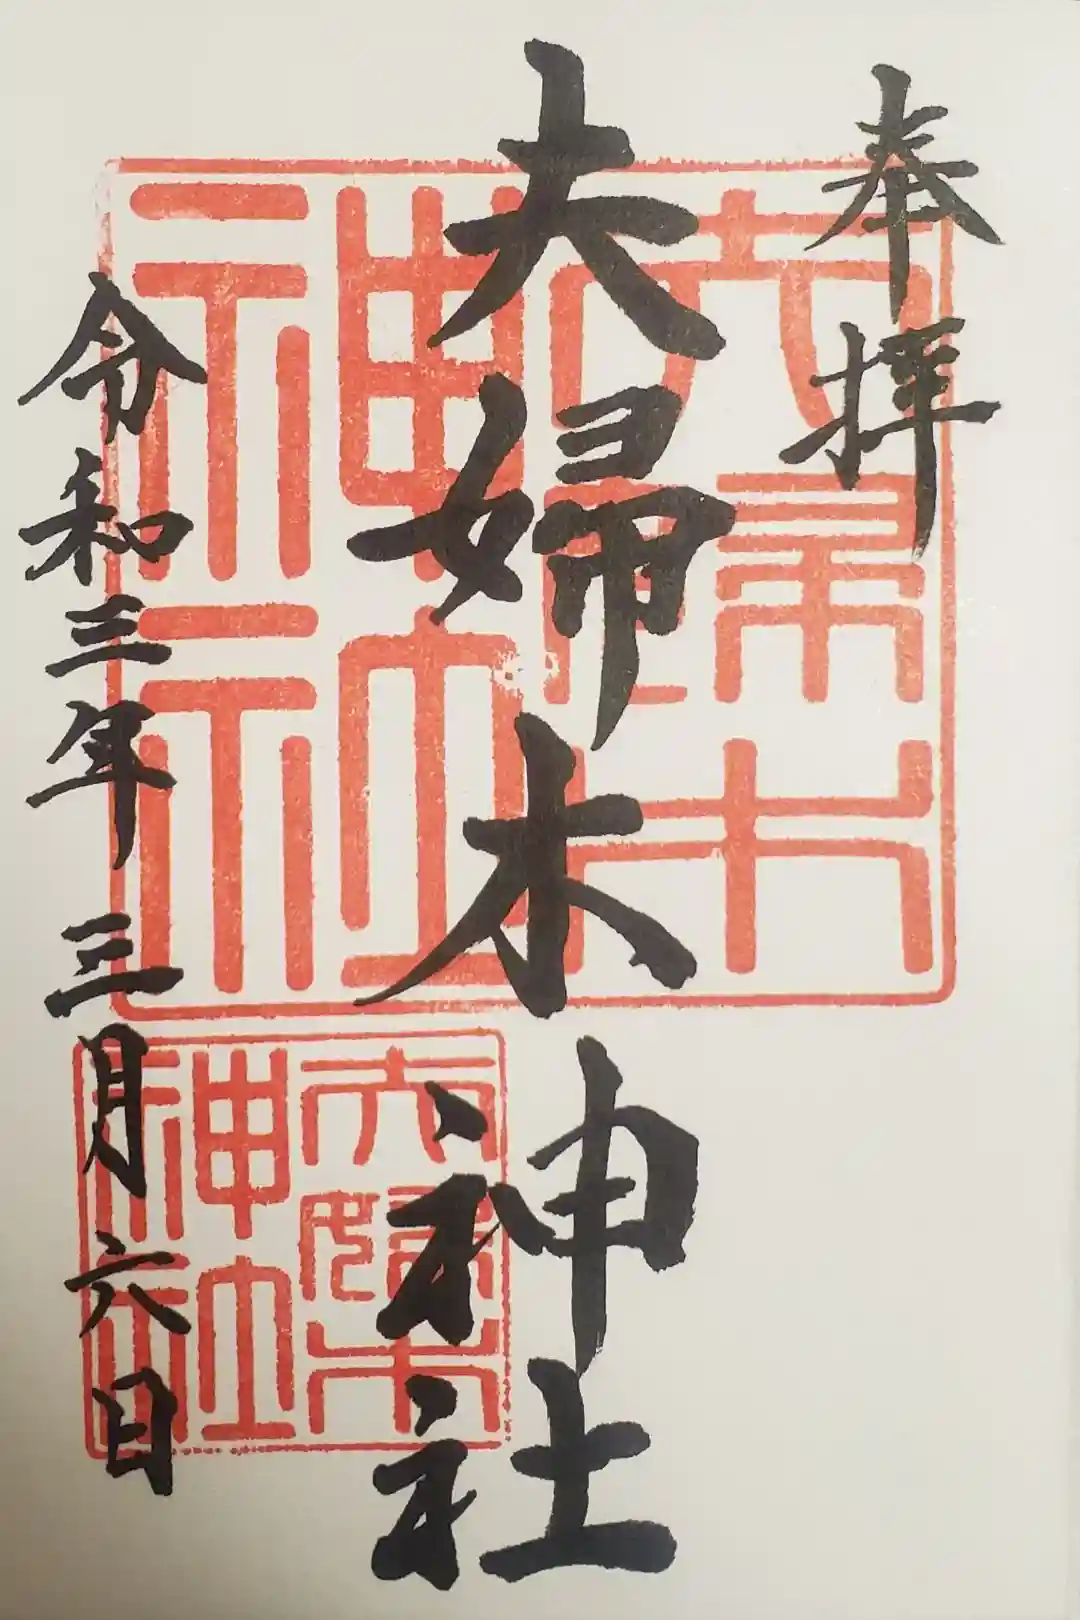 奉拝
大婦木神社
令和三年三月六日
大婦木
神社
大婦木
神社